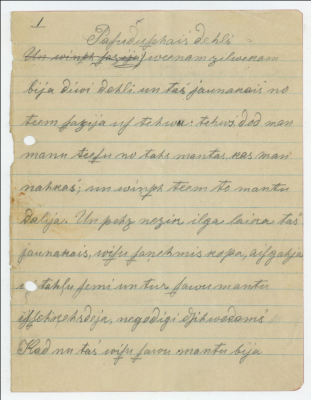 1
Pasuduschais dehls.
Un winsch sazija weenam zilwekam
bija diwi dehli un tas jaunakais no
teem sazija us tehwu: tehws dod man
manu teesu no tahs mantas, kas man
nahkas; un winsch teem to mantu
dalija. Un pehz nezik ilga laika tas
jaunakais, wisu sanehmis kopa, aisgahja
us tahlu semi un tur sawu mantu
isschkehrdeja, negodigi dsihwodams
Kad nu tas wisu sawu mantu bija